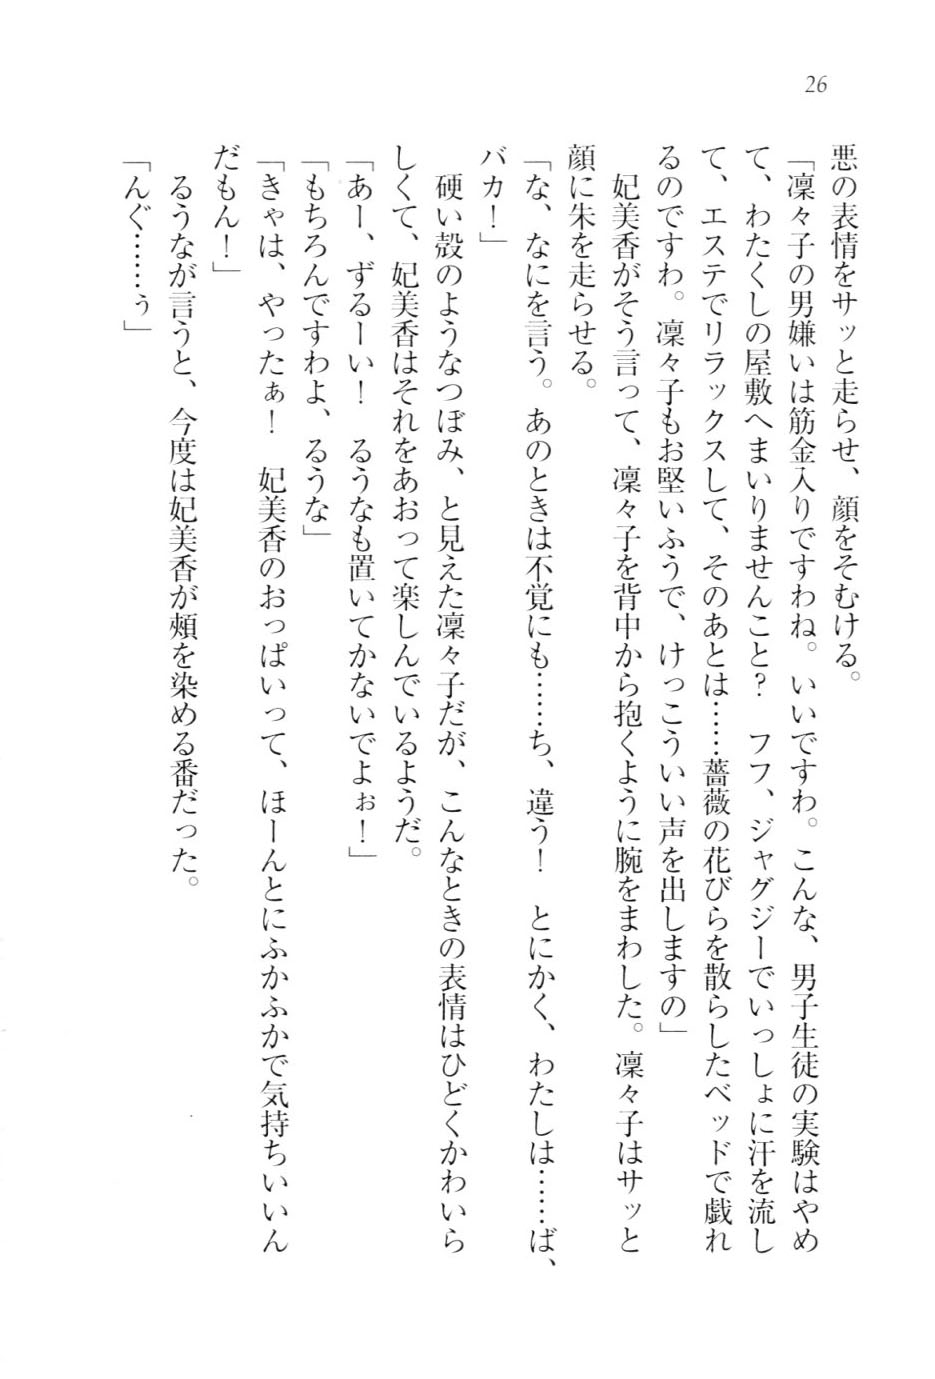 26
悪の表情をサッと走らせ、顔をそむける。
「凜々子の男嫌いは筋金入りですわね。いいですわ。こんな、男子生徒の実験はやめ
て、わたくしの屋敷へまいりませんこと？　フフ、ジャグジーでいっしょに汗を流し
て、エステでリラックスして、そのあとは……薔薇の花びらを散らしたベッドで戯れ
るのですわ。凜々子もお堅いふうで、けっこういい声を出しますの」
　妃美香がそう言って、凜々子を背中から抱くように腕をまわした。凜々子はサッと
顔に朱を走らせる。
「な、なにを言う。あのときは不覚にも……ち、違う！　とにかく、わたしは……ば、
バカ！」
　硬い殻のようなつぼみ、と見えた凜々子だが、こんなときの表情はひどくかわいら
しくて、妃美香はそれをあおって楽しんでいるようだ。
「あー、ずるーい！　るうなも置いてかないでよぉ！」
「もちろんですわよ、るうな」
「きゃは、やったぁ！　妃美香のおっぱいって、ほーんとにふかふかで気持ちいいん
だもん！」
　るうなが言うと、今度は妃美香が頰を染める番だった。
「んぐ……ぅ」